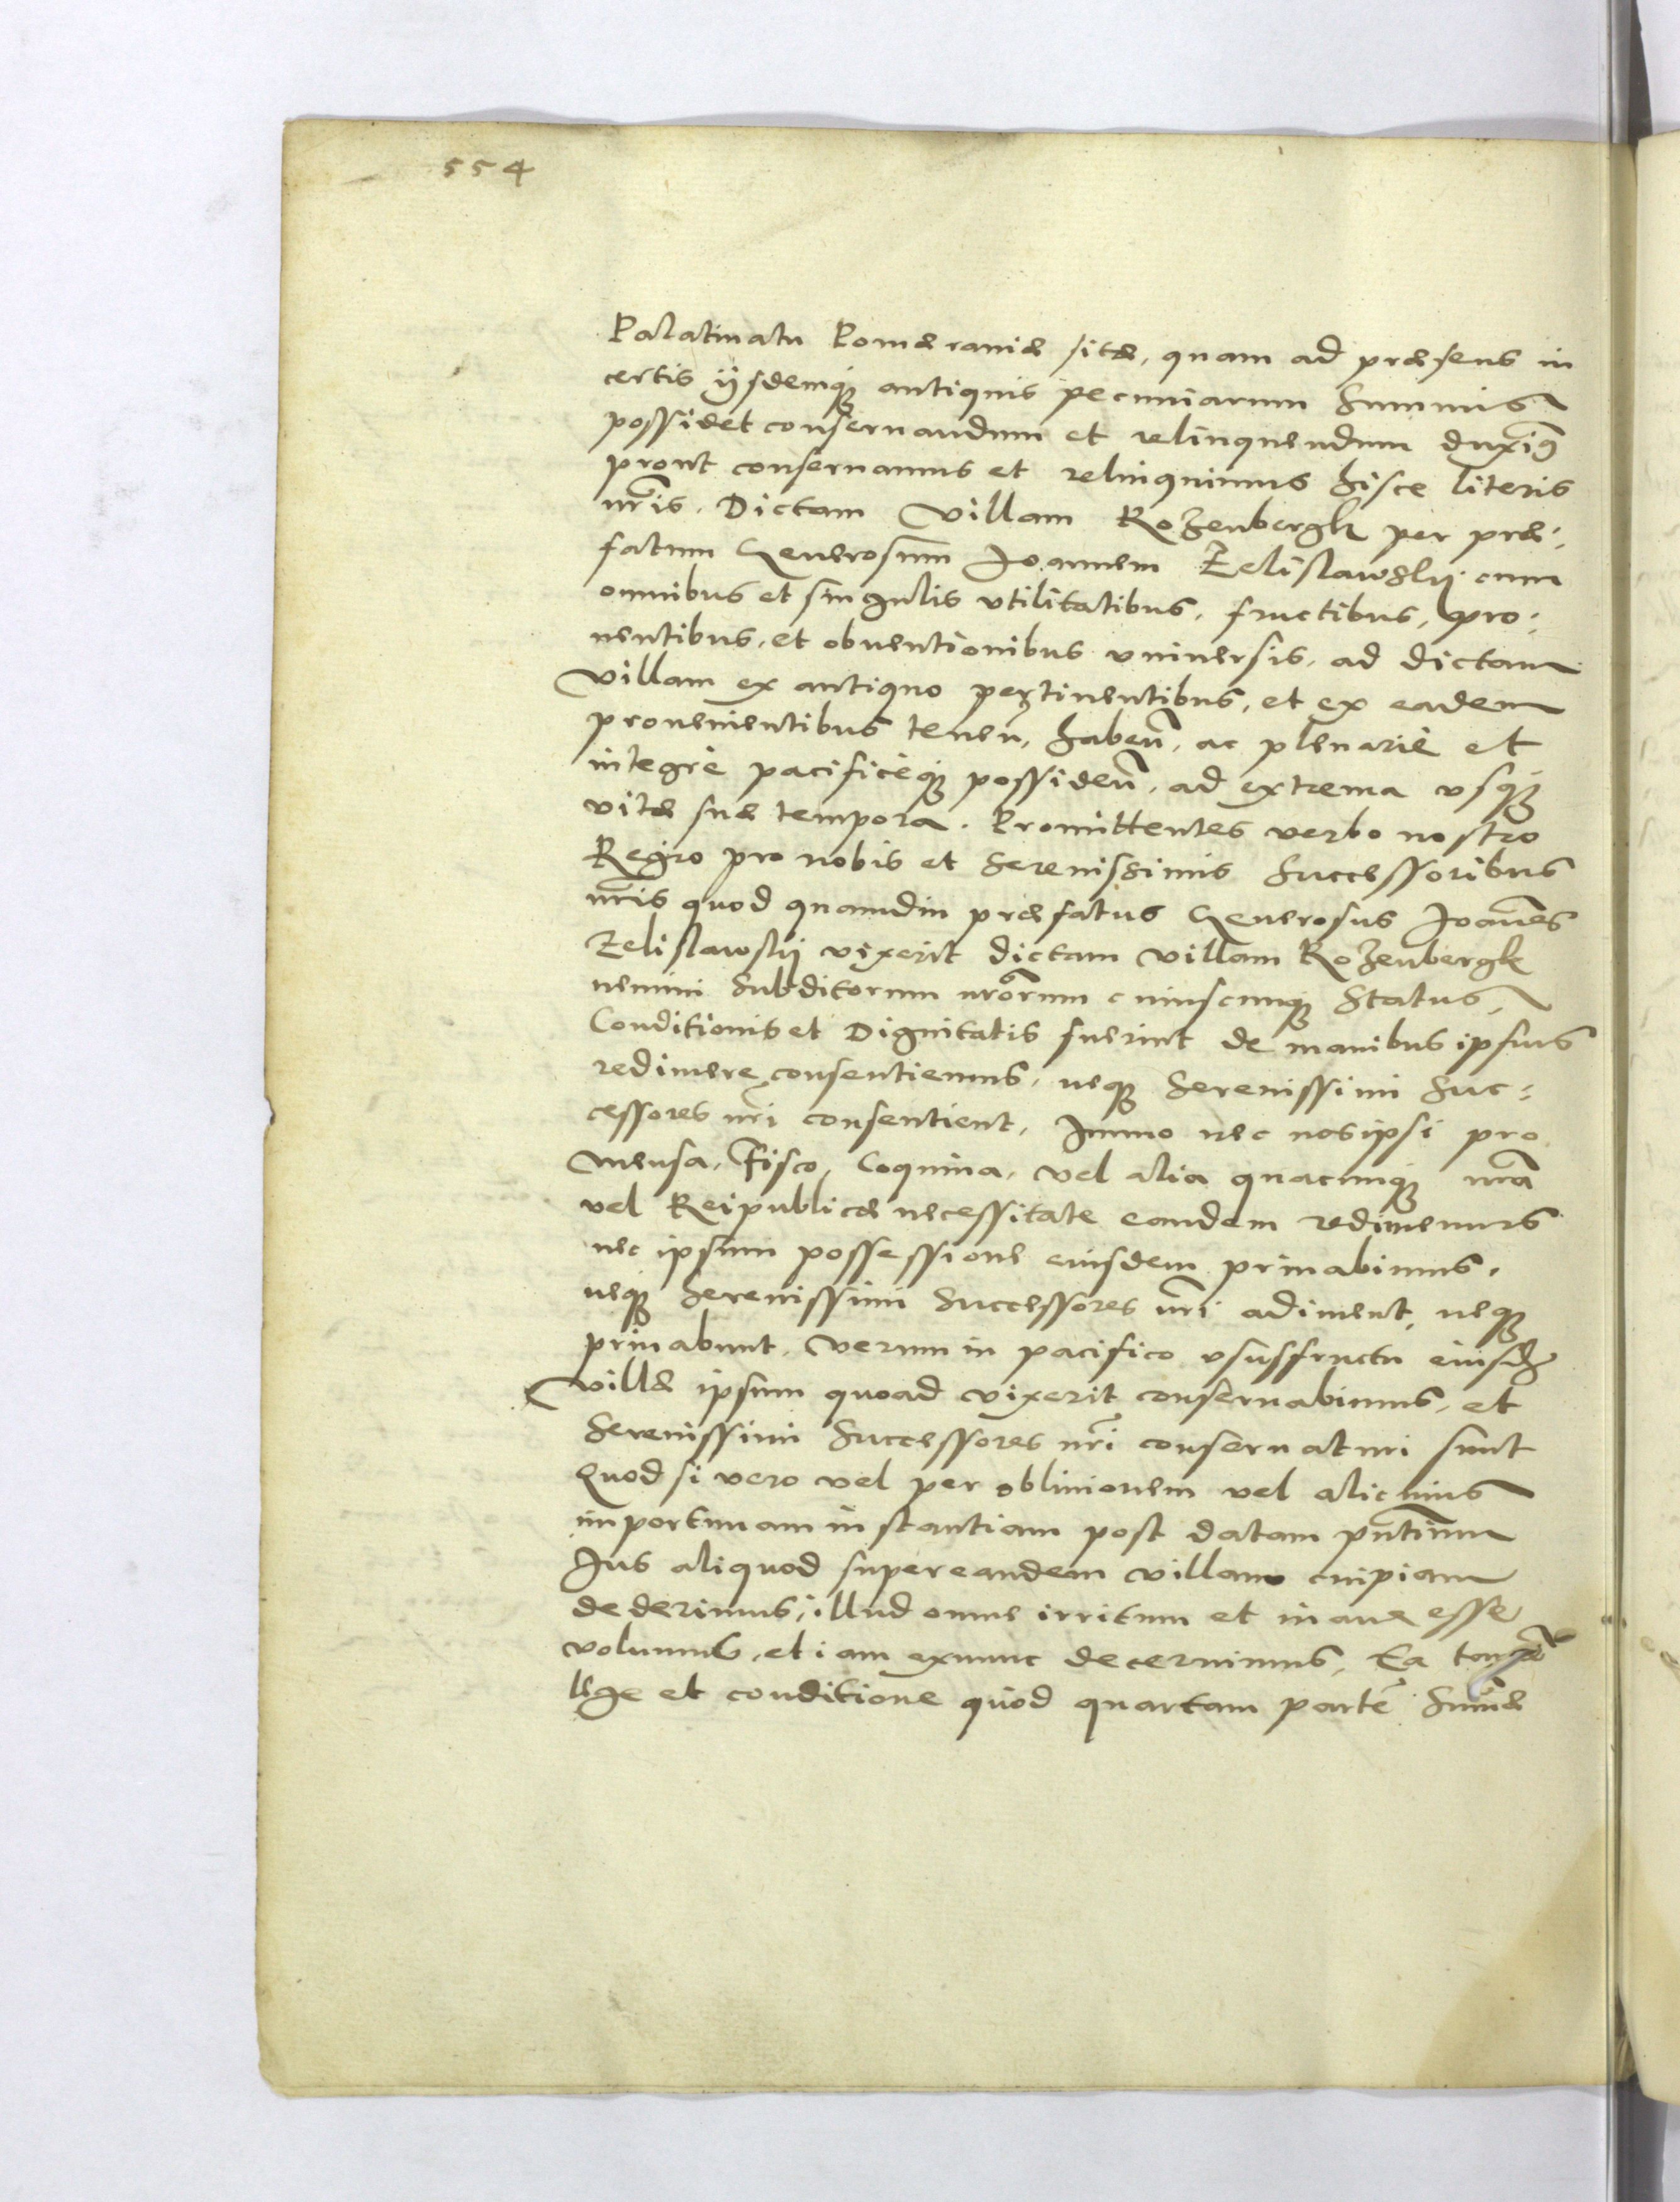 554
Palatinatu Pomæraniæ sitæ, quam ad præsens in
certis ijsdemq3 antiquis pecuniarum Summis
possidet conseruandum et relinquendum duxim9
prout conseruamus et relinquimus hisce literis
nr̃is. Dictam Villam Rozenbergk per præ:
fatum Generosum Joannem Zelislawsky cum
omnibus et singulis vtilitatibus, fructibus, pro:
uentibus, et obuentionibus vniuersis, ad dictam
Villam ex antiquo pertinentibus, et ex eadem
prouenientibus teneñ, habeñ, ac plenariè et
integrè pacificèq3 possideñ, ad extrema vsq3
vitæ suæ tempora. Promittentes verbo nostro
Regio pro nobis et Serenissimis Successoribus
nr̃is quod quamdiu præfatus Generosus Joañes
Zelislawsky vixerit dictam villam Rozenbergk
nemini Subditorum nr̃orum cuiuscunq3 Status,
Conditionis et Dignitatis fuerint de manibus ipsius
redimere consentiemus, neq3 Serenissimi Suc:
cessores nr̃i consentient, Immo nec nos ipsi pro
Mensa, Fisco, Coquina, vel alia quacunq3 nr̃a
vel Reipublicæ necessitate eandem redimemus
nec ipsum possessione eiusdem priuabimus,
neq3 Serenissimi Successores nr̃i adiment, neq3
priuabunt, verum in pacifico vsusfructu eiusd̃
Villæ ipsum quoad vixerit conseruabimus, et
Serenissimi Successores nr̃i conseruaturi sunt
Quod si vero vel per obliuionem vel alicuius
importunam instantiam post datam pñtium
Jus aliquod super eandem villam cuipiam
dederimus, illud omne irritum et inane esse
volumus, et iam exnunc decernimus, Ea tamẽ
lege et conditione quod quartam partẽ Sum̃æ